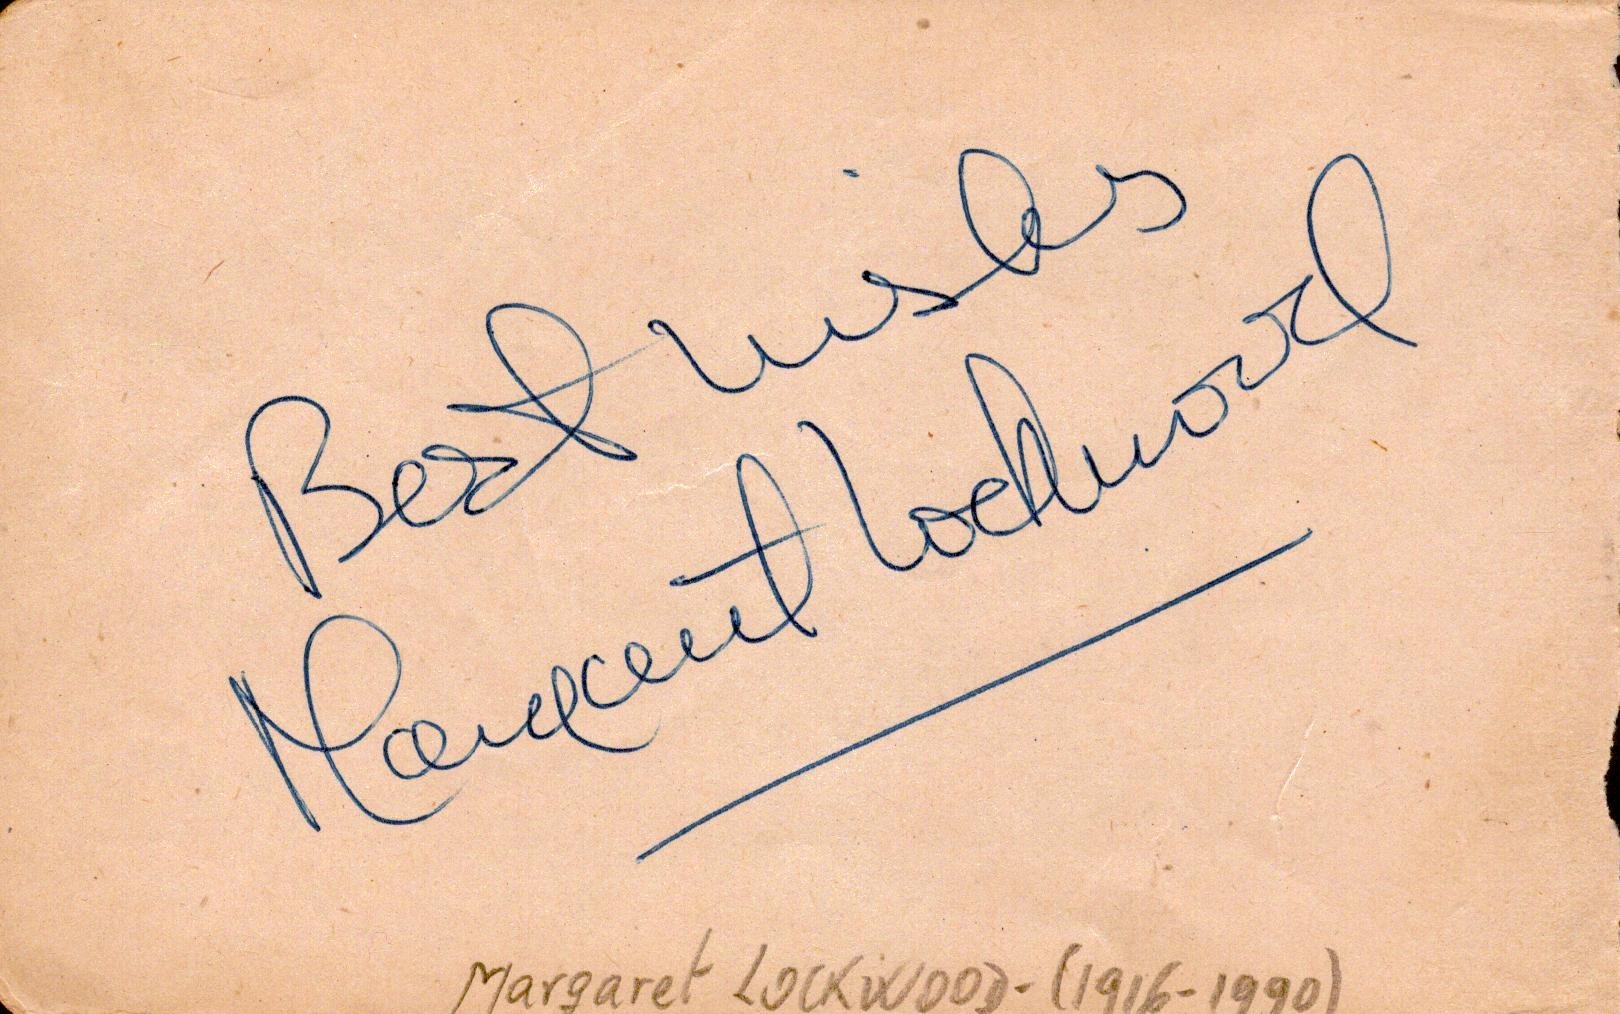 Best wishes
Margaret Lockwood
Margaret LOCKWOOD - (1916-1990)